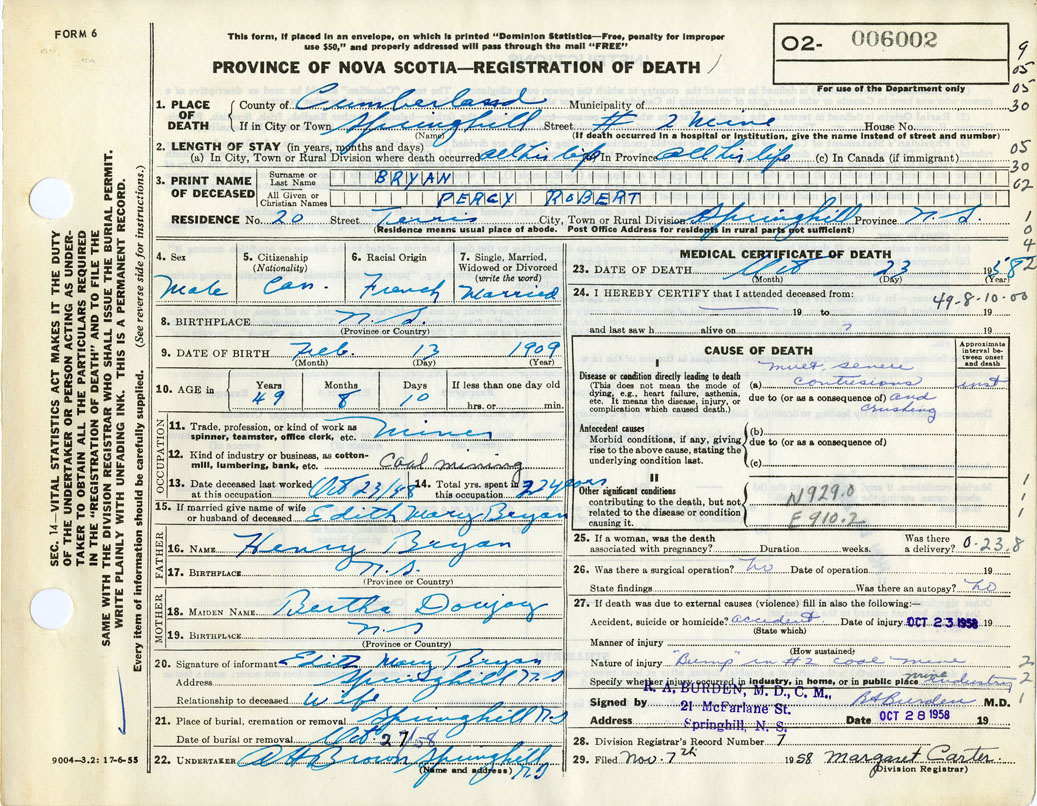 FORM 6
This form, if placed in an envelope, on which is printed "Dominion Statistics—Free, penalty for improper
use $50," and properly addressed will pass through the mail "FREE"
PROVINCE OF NOVA SCOTIA—REGISTRATION OF DEATH
02- 006002
For use of the Department only
9
05
05
30
05
30
62
1
0
4
2
1. PLACE OF DEATH
County of Cumberland Municipality of
If in City or Town Springhill Street # 2 Mine House No.
(Name) (If death occurred in a hospital or institution, give the name instead of street and number)
2. LENGTH OF STAY (in years, months and days)
(a) In City, Town or Rural Division where death occurred all his life (b) In Province all his life (c) In Canada (if immigrant)
3. PRINT NAME OF DECEASED
Surname or Last Name BRYAN
All Given or Christian Names PERCY ROBERT
RESIDENCE No. 20 Street City, Town or Rural Division Springhill Province N.S.
(Residence means usual place of abode. Post Office Address for residents in rural parts not sufficient)
4. Sex Male
5. Citizenship (Nationality) Can.
6. Racial Origin French
7. Single, Married, Widowed or Divorced (write the word) Married
8. BIRTHPLACE N.S.
(Province or Country)
9. DATE OF BIRTH Feb. 13 1909
(Month) (Day) (Year)
10. AGE in Years 49 Months 8 Days 10 If less than one day old
hrs. or min.
OCCUPATION
11. Trade, profession, or kind of work as spinner, teamster, office clerk, etc. Miner
12. Kind of industry or business, as cotton-mill, lumbering, bank, etc. Coal mining
13. Date deceased last worked at this occupation Oct 23/58
14. Total yrs. spent in this occupation 22 years
15. If married give name of wife or husband of deceased Edith Mary Bryan
FATHER
16. NAME Henry Bryan
17. BIRTHPLACE N.S.
(Province or Country)
MOTHER
18. MAIDEN NAME Bertha
19. BIRTHPLACE N.S
(Province or Country)
20. Signature of informant Edith Mary Bryan
Address Springhill N.S
Relationship to deceased Wife
21. Place of burial, cremation or removal Springhill N.S
Date of burial or removal Oct 27/58
22. UNDERTAKER A H Brown Springhill N.S
(Name and address)
MEDICAL CERTIFICATE OF DEATH
23. DATE OF DEATH Oct 23 1958
(Month) (Day) (Year)
24. I HEREBY CERTIFY that I attended deceased from:
49-8-10-00
19 to 19
and last saw h alive on 19
CAUSE OF DEATH
Approximate interval between onset and death
I
Disease or condition directly leading to death
(This does not mean the mode of dying, e.g., heart failure, asthenia, etc. It means the disease, injury, or complication which caused death.)
(a) mult. severe contusions inst
due to (or as a consequence of) and crushing
Antecedent causes
Morbid conditions, if any, giving rise to the above cause, stating the underlying condition last.
(b)
due to (or as a consequence of)
(c)
II
Other significant conditions
contributing to the death, but not related to the disease or condition causing it.
N929.0
E910.2
1
1
25. If a woman, was the death associated with pregnancy? Duration weeks. Was there a delivery? 0-23.8
26. Was there a surgical operation? no Date of operation 19
State findings Was there an autopsy? no
27. If death was due to external causes (violence) fill in also the following:—
Accident, suicide or homicide? accident. Date of injury OCT 23 1958 19
(State which)
Manner of injury
(How sustained)
Nature of injury "Bump" in #2 coal mine 2
Specify whether injury occurred in industry, in home, or in public place mine industry 2
Signed by R. A. BURDEN, M. D., C. M., RABurden M.D. 1
21 McFarlane St.
Address Springhill, N. S. Date OCT 28 1958 19
28. Division Registrar's Record Number 7
29. Filed Nov. 7th 1958 Margaret Carter
(Division Registrar)
SEC. 14—VITAL STATISTICS ACT MAKES IT THE DUTY
OF THE UNDERTAKER OR PERSON ACTING AS UNDER-
TAKER TO OBTAIN ALL THE PARTICULARS REQUIRED
IN THE "REGISTRATION OF DEATH" AND TO FILE THE
SAME WITH THE DIVISION REGISTRAR WHO SHALL ISSUE THE BURIAL PERMIT.
WRITE PLAINLY WITH UNFADING INK. THIS IS A PERMANENT RECORD.
Every item of information should be carefully supplied. (See reverse side for instructions.)
9004—3.2: 17-6-55